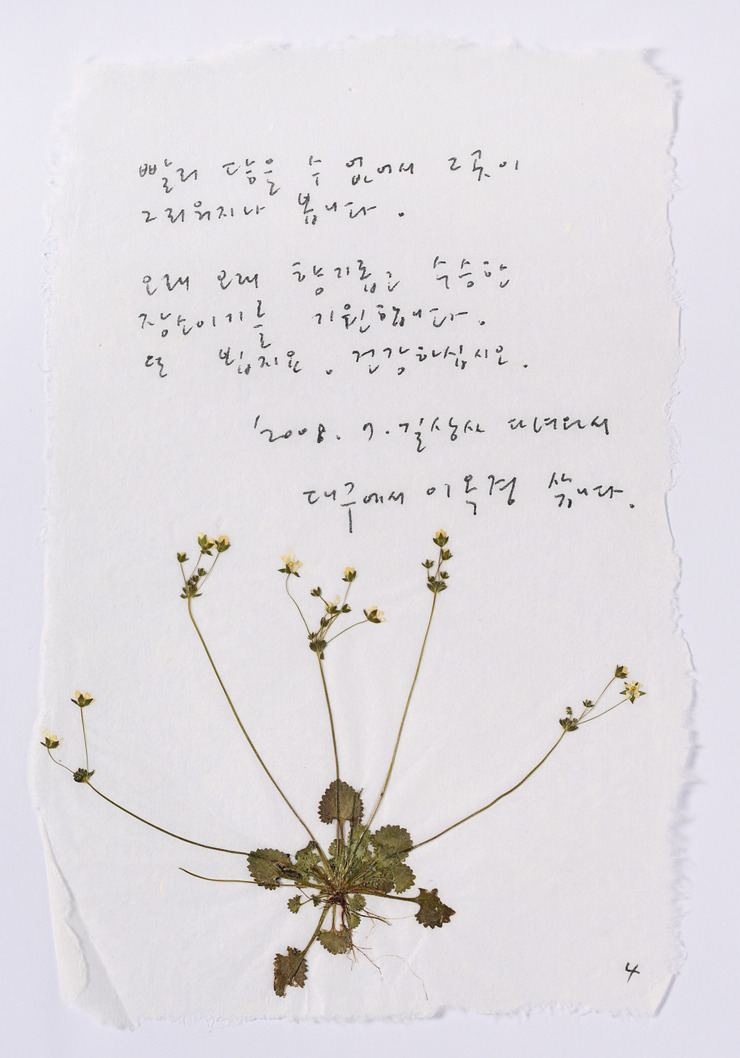 빨리 닮을 수 없어서 그곳이
그리워지나 봅니다.
오래 오래 향기롭고 수승한
장소이기를 기원합니다.
또 뵙지요. 건강하십시오.
'2008. 7. 길상사 다녀와서
대구에서 이옥경 씁니다.
4